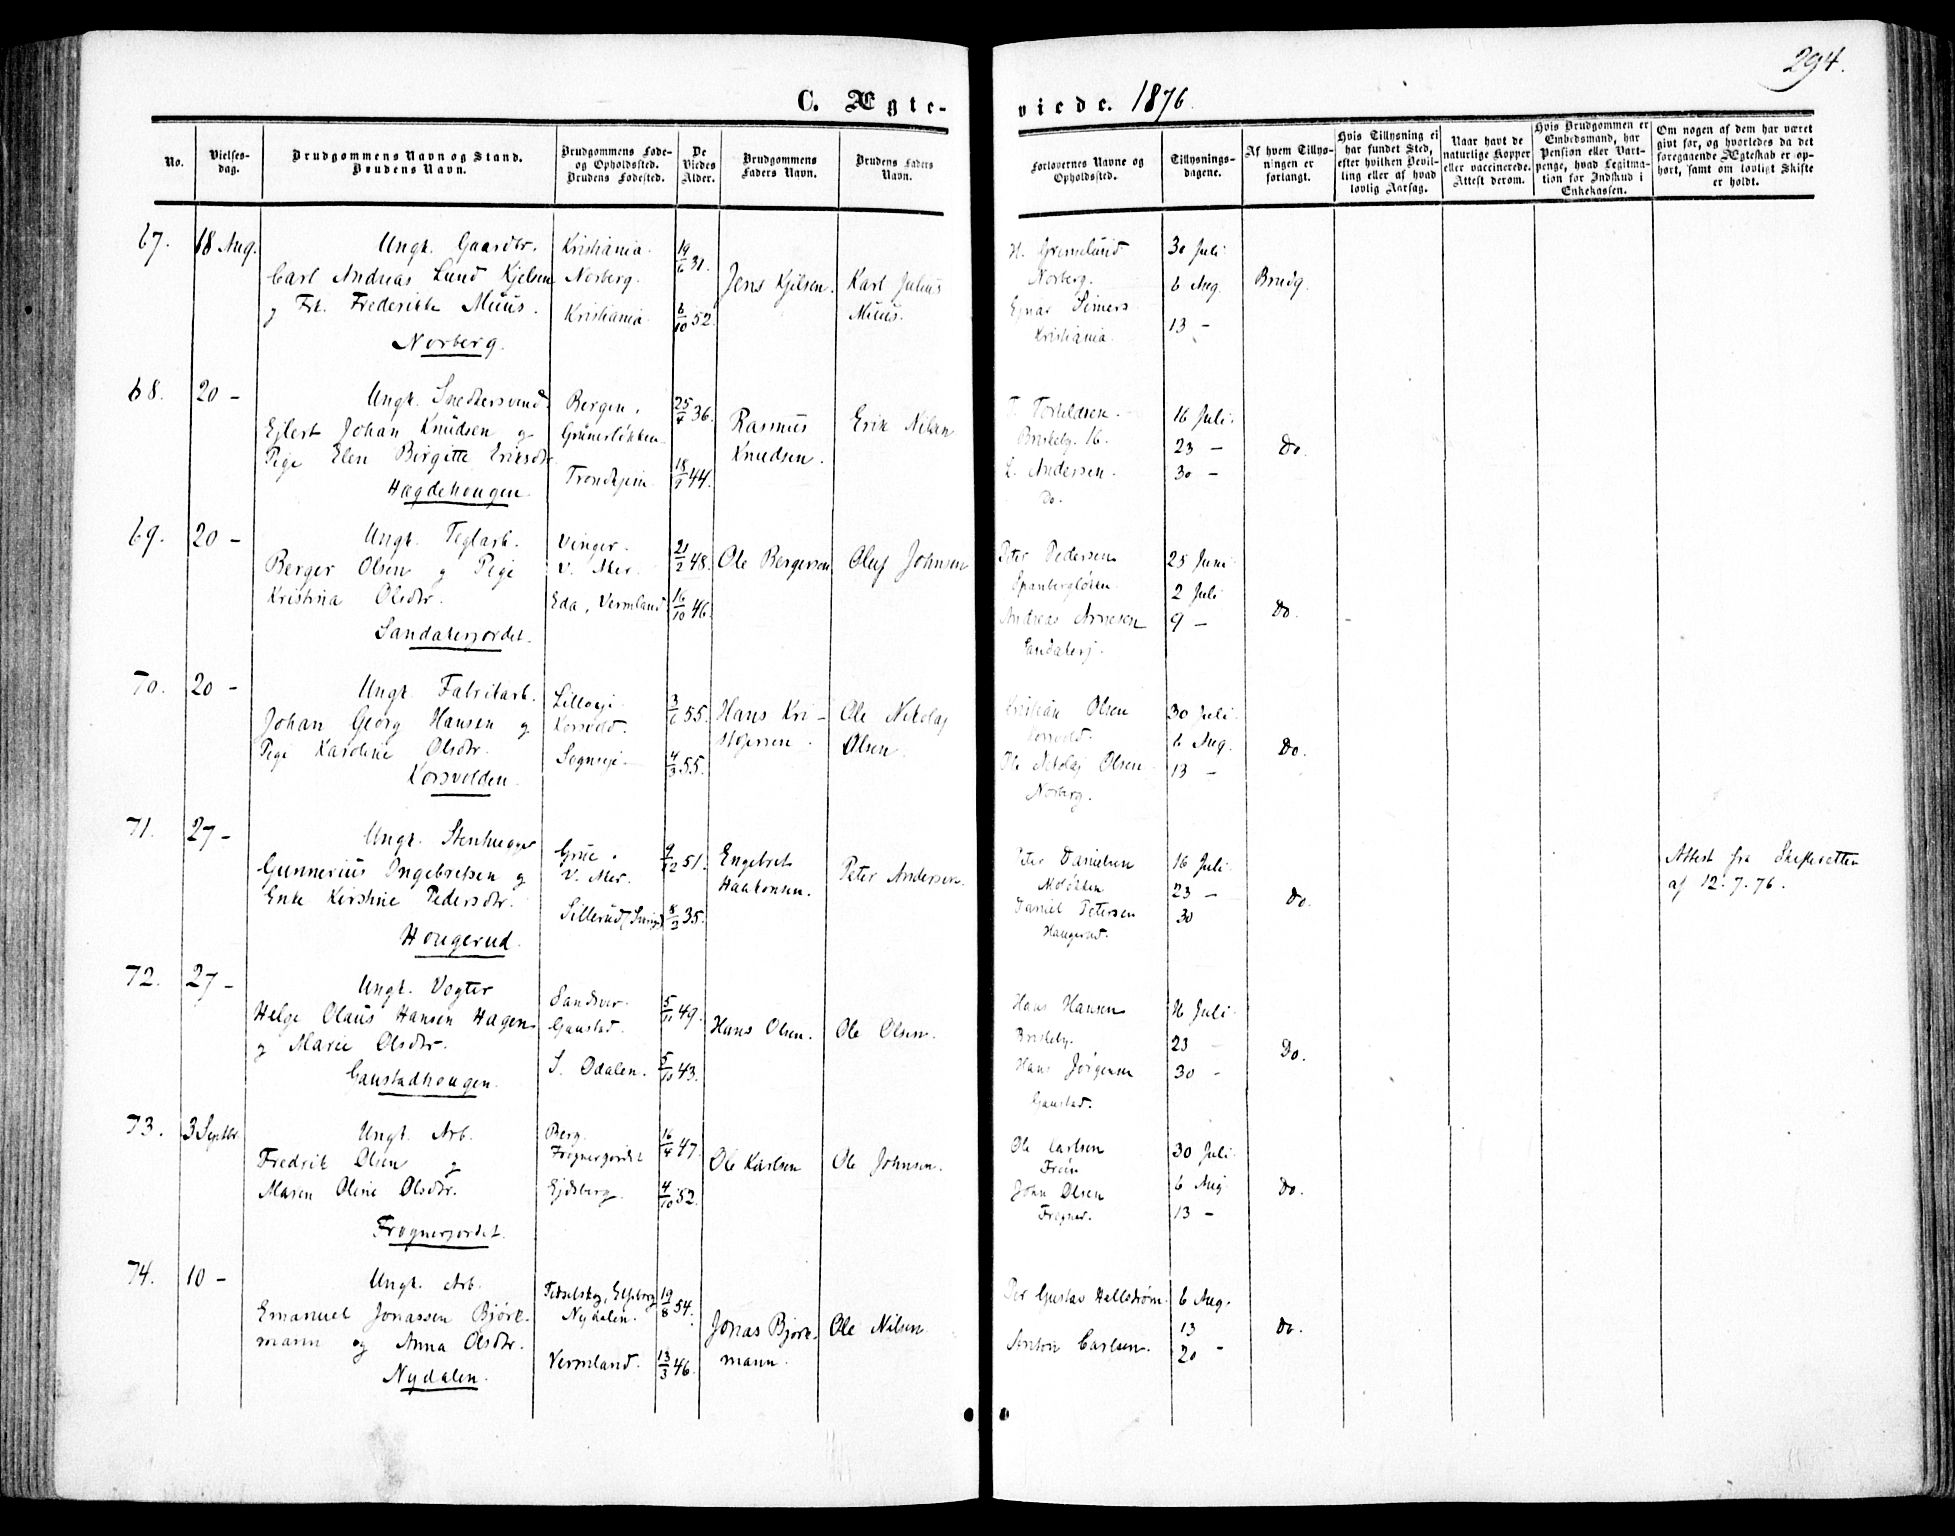 294.
C. Ægte- viede. 1876.
No.
Vielses-
dag.
Brudgommens Navn og Stand.
Brudens Navn.
Brudgommens Føde-
og Opholdssted.
Brudens Fødested.
De
Viedes
Alder.
Brudgommens
Faders Navn.
Brudens Faders
Navn.
Forlovernes Navne og
Opholdssted.
Tillysnings-
dagene.
Af hvem Tillys-
ningen er
forlangt.
Hvis Tillysning ei
har fundet Sted,
efter hvilken Bevil-
ling eller af hvad
lovlig Aarsag.
Naar havt de
naturlige Kopper
eller vaccinerede.
Attest derom.
Hvis Brudgommen er
Embedsmand, har
Pension eller Vart-
penge, hvad Legitima-
tion for Indskud i
Enkekassen.
Om nogen af dem har været
givt før, og hvorledes da det
foregaaende Ægteskab er op-
hørt, samt om lovligt Skifte
er holdt.
67. 18 Aug.
Ungk. Gaardbr.
Carl Andreas Lund Kjelsen
og Frk. Frederikke Muus.
Norberg.
Kristiania.
Norberg.
Kristiania.
19/6 31.
6/10 52.
Jens Kjelsen.
Karl Julius
Muus.
H. Grønnelund
Norberg.
Ejnar Simers
Kristiania.
30 Juli
6 Aug.
13 -
Brudg.
68. 20 -
Ungk. Snedkersvend.
Ejlert Johan Knudsen og
Pige Elen Birgitte Eriksdtr.
Hægdehougen.
Bergen.
Grünerløkken.
Trondhjem.
25/4 36.
44.
Rasmus
Knudsen.
Erik Nilsen
Briskeby. 16.
L. Andersen.
Do.
16 Juli.
23 -
30 -
Do.
69. 20 -
Ungk. Teglarb.
Berger Olsen og Pige
Kristina Olsdtr.
Sandakerjordet.
Vinger.
V. Aker.
Eda, Vermland
21/2 48.
16/10 46.
Ole Bergersen
Oluf Johnsen
Peter Pedersen
Andreas Arnesen
Sandakerj.
25 Juni
2 Juli
9 -
Do.
70. 20 -
Ungk. Fabrikarb.
Johan Georg Hansen og
Pige Karoline Olsdtr.
Korsvolden.
Lilloeje
Korsvold.
Sognseje
3/6 55.
4/3 55.
Hans Kri-
stofersen.
Ole Nikolaj
Olsen.
Kristian Olsen
Korsvold.
Ole Nikolaj Olsen
Norberg.
30 Juli.
6 Aug.
13 -
Do.
71. 27 -
Ungk. Stenhugger
Gunnerius Ingebretsen og
Enke Kirstine Pedersdtr.
Hougerud.
Grue.
V. Aker.
Sillerud
51.
8/3 35.
Engebret
Haakonsen.
Peter Andersen.
Peter Danielsen
Daniel Petersen
Haugerud.
16 Juli.
23 -
30
Do.
Attest fra Skifteretten
af 12-7-76.
72. 27 -
Ungk. Vogter
Helge Olaus Hansen Hagen
og Marie Olsdtr.
Gaustadhougen.
Sandsver.
Gaustad.
S. Odalen.
5/11 49.
5/10 43.
Hans Olsen.
Ole Olsen.
Hans Hansen
Briskeby.
Hans Jørgensen
Gaustad.
16 Juli.
23 -
30 -
Do.
73. 3 Septbr.
Ungk. Arb.
Fredrik Olsen og
Maren Oline Olsdtr.
Frognerjordet.
Berg.
Frognerjordet
Ejdsberg.
16/4 47.
4/10 52.
Ole Karlsen
Ole Johnsen.
Ole Karlsen
John Olsen
Frogner.
30 Juli.
6 Aug
13 -
Do.
74. 10 -
Ungk. Arb.
Emanuel Jonassen Björk-
mann og Anna Olsdtr.
Nydalen.
Elfsborg
Nydalen.
Vermland.
19/8 54.
13/3 46.
Jonas Bjørk-
mann.
Ole Nilsen
Per Gustav Hellstrøm.
Anton Carlsen.
6 Aug.
13
20 -
Do.